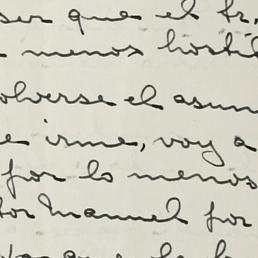 ser que el Sr.
menos hostil
olverse el asun
e irme, voy a
por lo menos
tor Manuel por